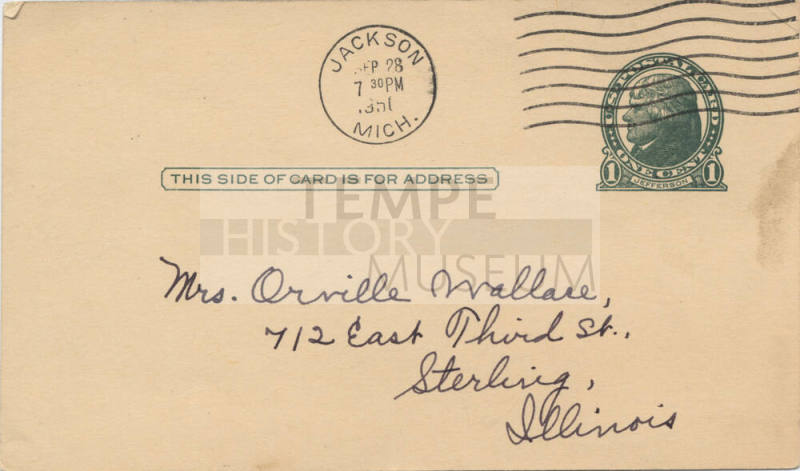 JACKSON
SEP 28
7 30 PM
1951
MICH.
U.S. POSTAL CARD
ONE CENT
1 JEFFERSON 1
THIS SIDE OF CARD IS FOR ADDRESS
TEMPE
HISTORY
MUSEUM
Mrs. Orville Wallace,
712 East Third St.,
Sterling,
Illinois